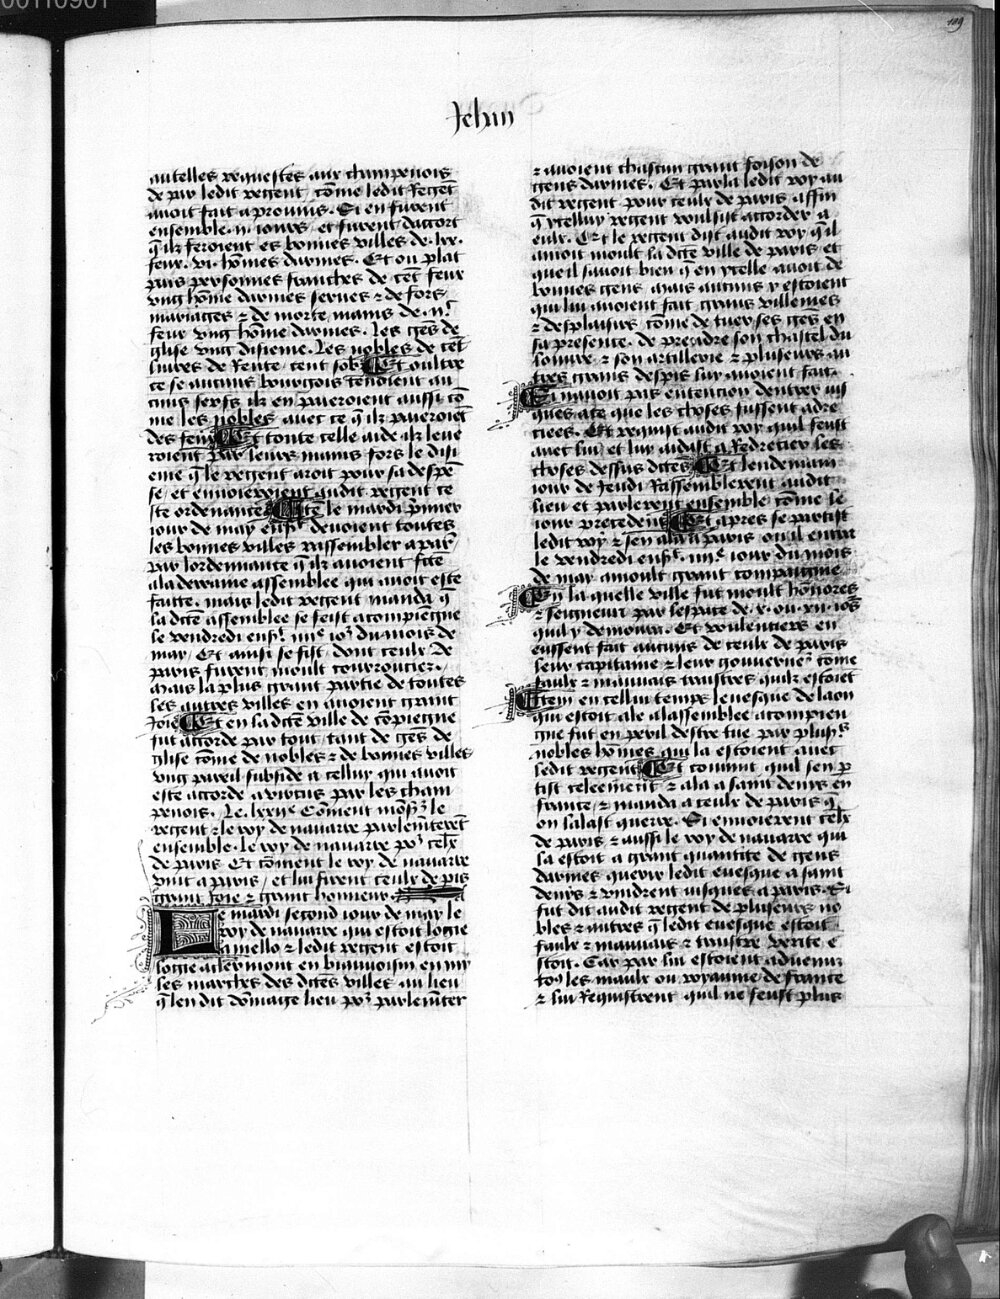 00110901
109
Jehan
autelles requestes aux champenois
de par ledit regent / cõme ledit Regẽt
auoit fait a prouuins. Si en furent
ensemble .ii. iours / et furent daccort
q̃ ilz feroient es bonnes villes de .lxx.
feux .vi. hõmes darmes. Et ou plat
pais personnes franches de cẽt feux
vng hõme darmes serues ⁊ de fors
mariages ⁊ de morte mains de .iiͨ.
feux vng hõme darmes. Les gẽs de
glise vng disieme. Les nobles de cẽt
liures de Rente / cent solz Et oultre
ce se aucuns bourgois tenoient au
cuns serfs ilz en paieroient aussi cõ
me les nobles auec ce q̃ ilz paieroiẽt
des feux Et toute telle aide ilz leue
roient par leurs mains fors le disi
eme q̃ le regent aroit pour sa despẽ
se / et enuoieroient audit regent ce
ste ordenance Ite le mardi p̃mier
iour de may ensͭ deuoient toutes
les bonnes villes rassembler a paris
par lordennance q̃ ilz auoient fcẽ
a la derraine assemblee qui auoit este
faitte. mais ledit regent manda q̃
la dicte assemblee se feist a compiegne
le vendredi ensͭ iiiiͤ ior du mois de
may / Et ainsi se fist / dont ceulx de
paris furent moult courrouciez.
Mais la plus grant partie de toutes
les autres villes en auoient grant
ioie Et en la dicte ville de cõpiegne
fut accorde par tout tant de gẽs de
glise cõme de nobles ⁊ de bonnes villes
vng pareil subside a celluy qui auoit
este accorde a vertus par les cham
penois. Le lxxiiͤ Cõment mõsr le
regent ⁊ le roy de nauarre parlemẽterẽt
ensemble. le roy de nauarre por ceulx
de paris Et cõment le roy de nauarre
vint a paris / et lui firent ceulx de pis
grant ioie ⁊ grant honneur.
Le mardi second iour de may le
roy de nauarre qui estoit logie
a mello ⁊ ledit regent estoit
logie a clermont en biauuoisin en my
les marches des dictes villes au lieu
q̃ len dit dõmage lieu por parlemẽter
⁊ auoient chascun grant foison de
gens darmes. Et parla ledit roy au
dit regent pour ceulx de paris affin
q̃ ycelluy regent voulsist accorder a
eulx. Et le regent dist audit roy q̃ il
amoit moult la dicte ville de paris et
que il sauoit bien q̃ en ycelle auoit de
bonnes gens / mais aucuns y estoient
qui lui auoient fait grans villenies
⁊ desplaisirs cõme de tuer ses gẽs en
sa presence / de prẽdre son chastel du
louure ⁊ son artillerie ⁊ plusieurs au
tres grans despis luy auoient fait.
Si nauoit pas entencion dentrer iusques
ques a ce que les choses fussent adre
ciees. Et requist audit roy quil feust
auec lui / et luy aidast a Redrecier les
choses dessus dictes Et lendemain
iour de Jeudi Rassemblerent audit
lieu et parlerent ensemble cõme le
iour precedent Et apres se partist
ledit roy ⁊ sen ala a paris ou il entra
le vendredi ensͭ. iiiiͤ iour du mois
de may a moult grant compaignie
En la quelle ville fut moult hõnores
⁊ seigneur par lespace de .x. ou .xii. iors
quil y demoura. Et voulentiers en
eussent fait aucuns de ceulx de paris
leur capitaine ⁊ leur gouuernr cõme
faulx ⁊ mauuais traistres quilz estoiẽt
Item en cellui temps leuesque de laon
qui estoit ale a lassemblee a compien
gne fut en peril destre tue par plusrs
nobles hõmes qui la estoient auec
ledit regent Et conuint quil sen p̃
tist celeement ⁊ ala a saint denis en
france / ⁊ manda a ceulx de paris q̃
on lalast querre. Si enuoierent ceulx
de paris ⁊ aussi le roy de nauarre qui
la estoit a grant quantite de gens
darmes querir ledit euesque a saint
denis ⁊ vindrent iusques a paris. Si
fut dit audit regent de plusieurs no
bles ⁊ autres q̃ ledit euesque estoit
faulx ⁊ mauuais ⁊ traistre verite e
stoit. Car par lui estoient aduenuz
tos les maulx ou royaume de france
⁊ lui Requistrent quil ne feust plus